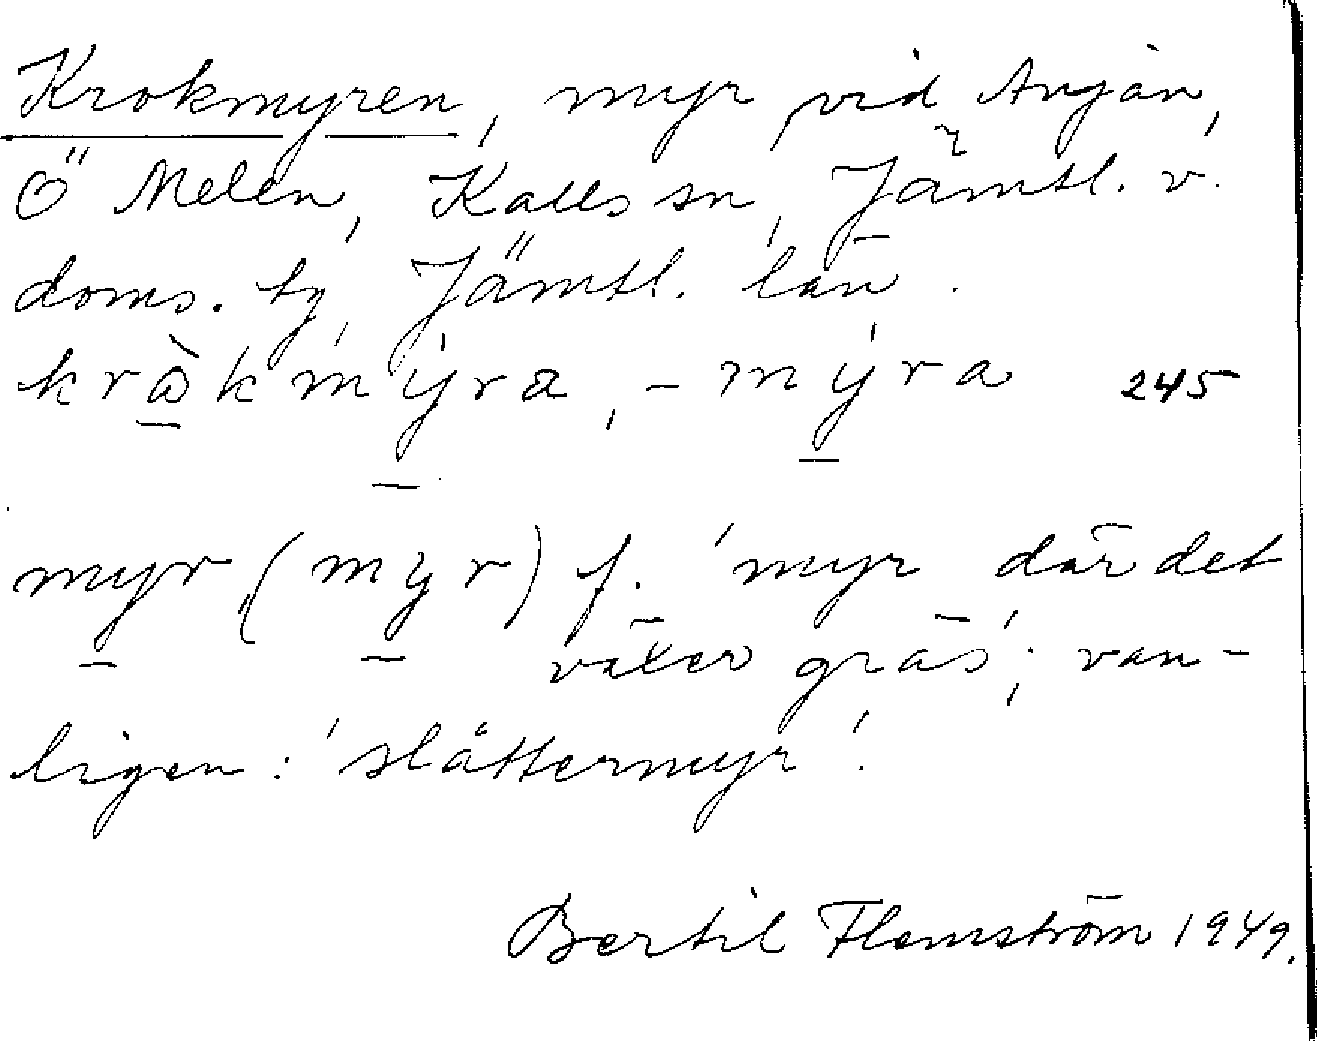 Krokmyren, myr vid Anjan,
Ö Melen, Kalls sn, Jämtl. v.
doms. tg, Jämtl. län.
krὼkmýra, -mýra 245
myr (mỳr) f. 'myr där det
växer gräs'; van-
ligen: 'slåttermyr'.
Bertil Flemström 1949.